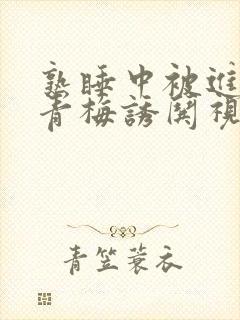 熟睡中被進
青梅誘關視
青笠蓑衣